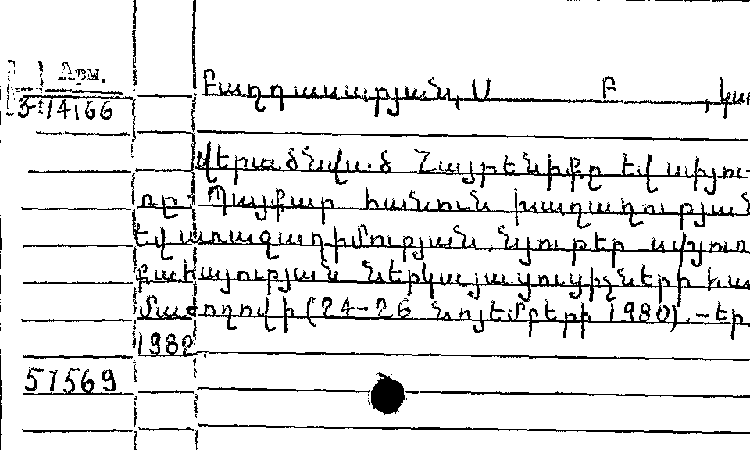 Արմ.
3-14166
Բաղդասարյան, Ս Բ , կա
Վերածնված Հայրենիքը եվ սփյու-
ռքը: Պայքար հանուն խաղաղության
եվ առաջադիմության. նյութեր սփյուռ
քահայության ներկայացուցիչների հա
մաժողովի (24-26 նոյեմբերի 1980).-Եր
1982
57569